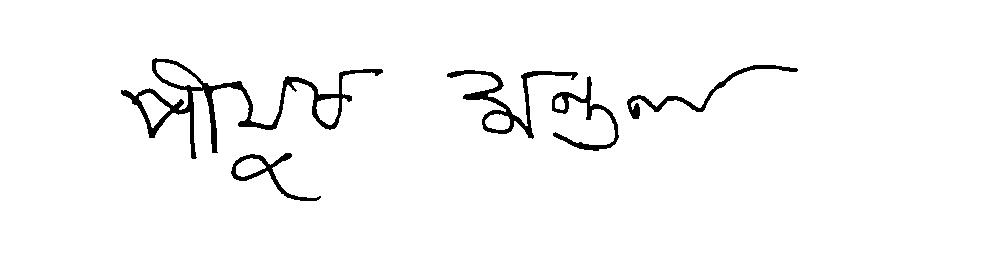 পীযুষ মন্ডল